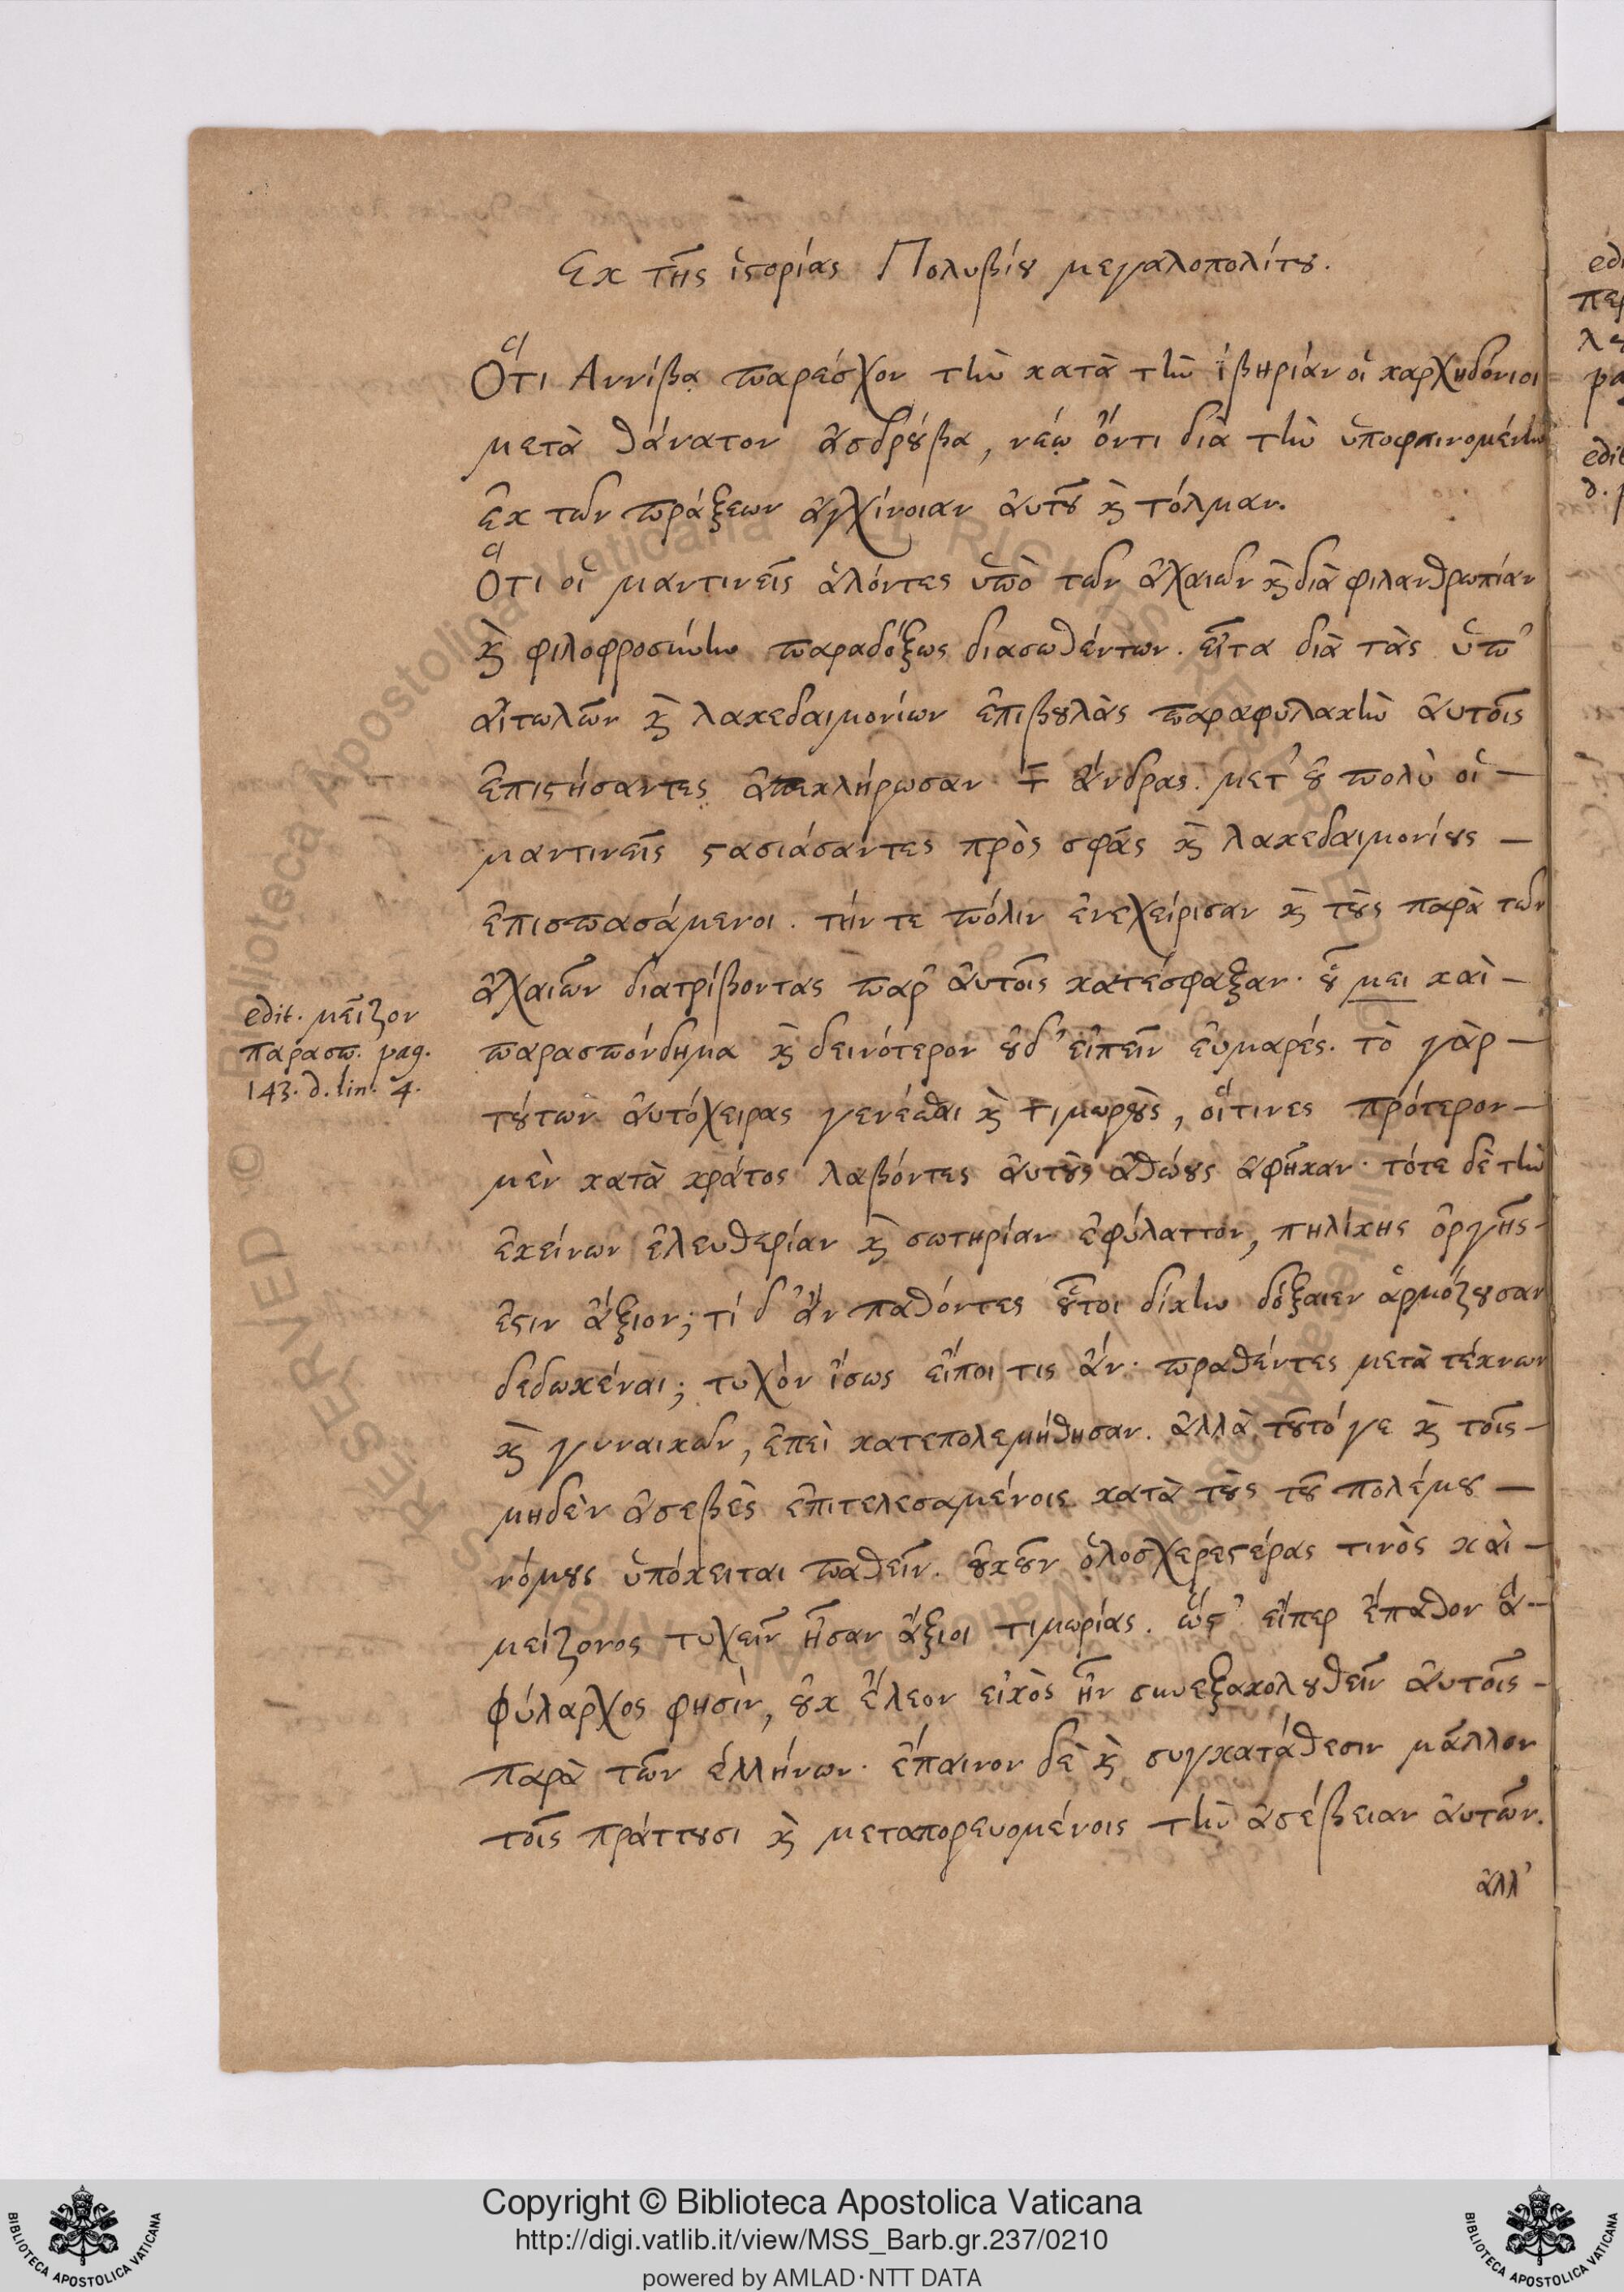 Εκ τῆς ἱςορίας Πολυβίȣ μεγαλοπολίτȣ.
Ὅτι Αννίβᾳ παρέσχον τὴν κατὰ τὴν ἰβηρίαν οἱ καρχηδόνιοι
μετὰ θάνατον ἀσδρȣ́βα, νέῳ ὄντι διὰ τὴν ὑποφαινομένην
ἐκ τῶν πράξεων ἀγχίνοιαν ἀυτȣ͂ ϗ̀ τόλμαν.
Ὅτι οἱ μαντινεῖς ἁλόντες ὑπὸ τῶν ἀχαιῶν ϗ̀ διὰ φιλανθρωπίαν
ϗ̀ φιλοφροσύνην παραδόξως διασωθέντων. εἶτα διὰ τὰς ὑπ’
ἀιτωλῶν ϗ̀ λακεδαιμονίων ἐπιβȣλὰς παραφυλακὴν ἀυτοῖς
ἐπιςήσαντες ἀπεκλήρωσαν τ̄ ἄνδρας. μετ’ ȣ̓ πολὺ οἱ —
μαντινεῖς ςασιάσαντες πρὸς σφᾶς ϗ̀ λακεδαιμονίȣς —
ἐπισπασάμενοι. τήν τε πόλιν ἐνεχείρισαν ϗ̀ τȣ̀ς παρὰ τῶν
ἀχαιῶν διατρίβοντας παρ’ ἀυτοῖς κατέσφαξαν. ȣ̔͂ μει καὶ —
edit. μεῖζον
παρασπ. pag.
143. d. lin. 4.
παρασπόνδημα ϗ̀ δεινότερον ȣ̓δ’ ἐιπεῖν ἐυμαρές. τὸ γὰρ —
τȣ́των ἀυτόχειρας γενέσθαι ϗ̀ τιμωρȣ̀ς, οἵτινες πρότερον —
μὲν κατὰ κράτος λαβόντες ἀυτȣ̀ς ἀθώȣς ἀφῆκαν. τότε δὲ τὴν
ἐκείνων ἐλευθερίαν ϗ̀ σωτηρίαν ἐφύλαττον, πηλίκης ὀργῆς —
ἐςιν ἄξιον; τί δ’ ἂν παθόντες ȣ̔͂τοι δίκην δόξαιεν ἁρμόζȣσαν
δεδωκέναι; τυχὸν ἴσως ἔιποι τις ἄν. πραθέντες μετὰ τέκνων
ϗ̀ γυναικῶν, ἐπεὶ κατεπολεμήθησαν. ἀλλὰ τȣ͂τό γε ϗ̀ τοῖς —
μηδὲν ἀσεβὲς ἐπιτελεσαμένοις κατὰ τȣ̀ς τȣ͂ πολέμȣ —
νόμȣς ὑπόκειται παθεῖν. ȣ̓κȣ͂ν ὁλοσχερεςέρας τινὸς καὶ —
μείζονος τυχεῖν ἦσαν ἄξιοι τιμωρίας. ὥς’ ἔιπερ ἔπαθον ἃ —
φύλαρχος φησὶν, ȣ̓κ ἔλεον εἰκὸς ἦν συνεξακολȣθεῖν ἀυτοῖς —
παρὰ τῶν ἑλλήνων. ἔπαινον δὲ ϗ̀ συγκατάθεσιν μᾶλλον
τοῖς πράττȣσι ϗ̀ μεταπορευομένοις τὴν ἀσέβειαν ἀυτῶν.
ἀλλ’
Copyright © Biblioteca Apostolica Vaticana
http://digi.vatlib.it/view/MSS_Barb.gr.237/0210
powered by AMLAD·NTT DATA